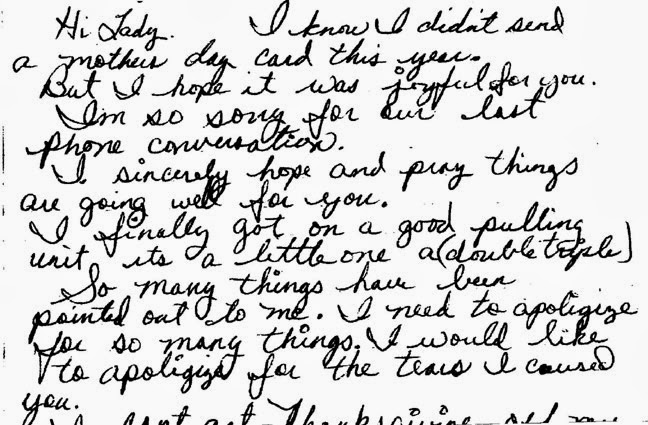 Hi Lady. I know I didn't send
a mothers day card this year.
But I hope it was joyful for you.
I'm so sorry for our last
phone conversation.
I sincerely hope and pray things
are going well for you.
I finally got on a good pulling
unit, its a little one a(double triple)
So many things have been
pointed out to me. I need to apoligize
for so many things. I would like
to apoligize for the tears I caused
you.